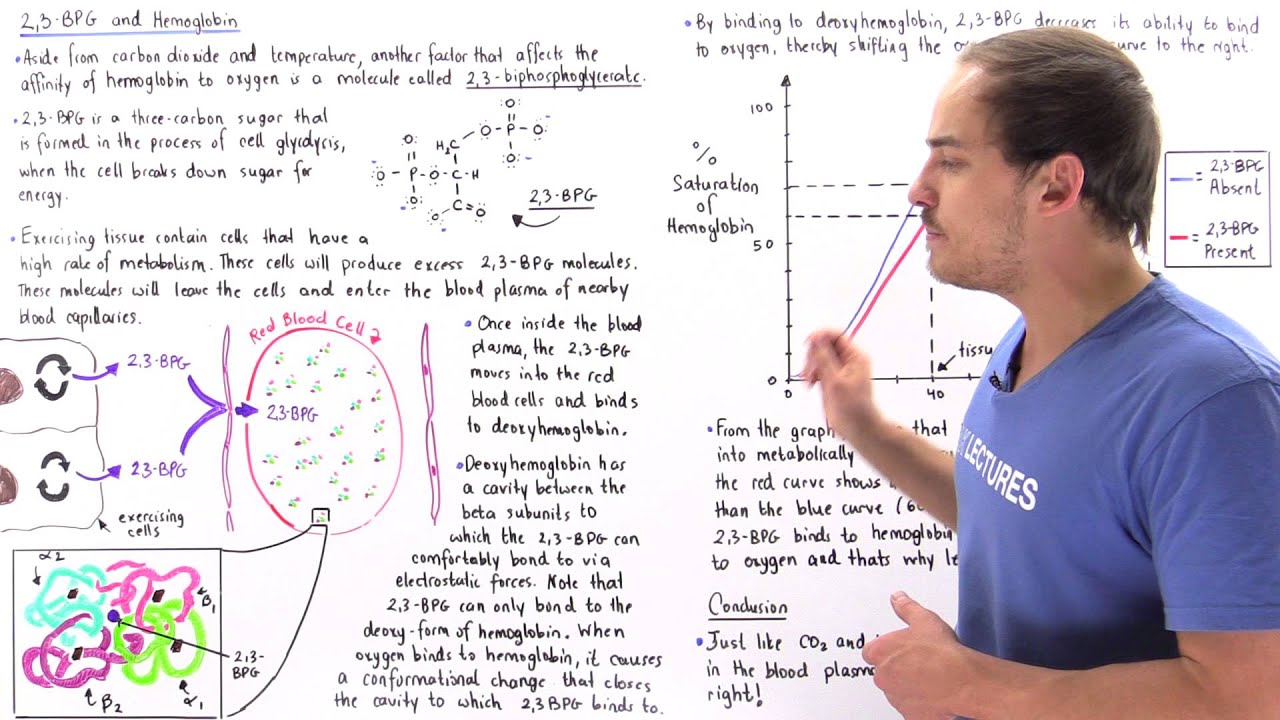 2,3-BPG and Hemoglobin
• Aside from carbon dioxide and temperature, another factor that affects the
affinity of hemoglobin to oxygen is a molecule called 2,3-biphosphoglycerate.
• 2,3-BPG is a three-carbon sugar that
is formed in the process of cell glycolysis,
when the cell breaks down sugar for
energy.
O
O-P-O
O
H2C
O
O-P-O-C-H
O
O C=O
2,3-BPG
• Exercising tissue contain cells that have a
high rate of metabolism. These cells will produce excess 2,3-BPG molecules.
These molecules will leave the cells and enter the blood plasma of nearby
blood capillaries.
2,3-BPG
2,3-BPG
exercising
cells
Red Blood Cell
2,3-BPG
α2
β1
β2
α1
2,3-
BPG
• Once inside the blood
plasma, the 2,3-BPG
moves into the red
blood cells and binds
to deoxyhemoglobin.
• Deoxyhemoglobin has
a cavity between the
beta subunits to
which the 2,3-BPG can
comfortably bond to via
electrostatic forces. Note that
2,3-BPG can only bond to the
deoxy-form of hemoglobin. When
oxygen binds to hemoglobin, it causes
a conformational change that closes
the cavity to which 2,3BPG binds to.
• By binding to deoxyhemoglobin, 2,3-BPG decreases its ability to bind
to oxygen, thereby shifting the curve to the right.
100
%
Saturation
of
Hemoglobin
50
0
0
40
= 2,3-BPG
Absent
= 2,3-BPG
Present
• From the graph, that
into metabolically
the red curve shows
than the blue curve
2,3-BPG binds to hemoglobin
to oxygen and thats why
Conclusion
• Just like CO2 and
in the blood
right!
LECTURES